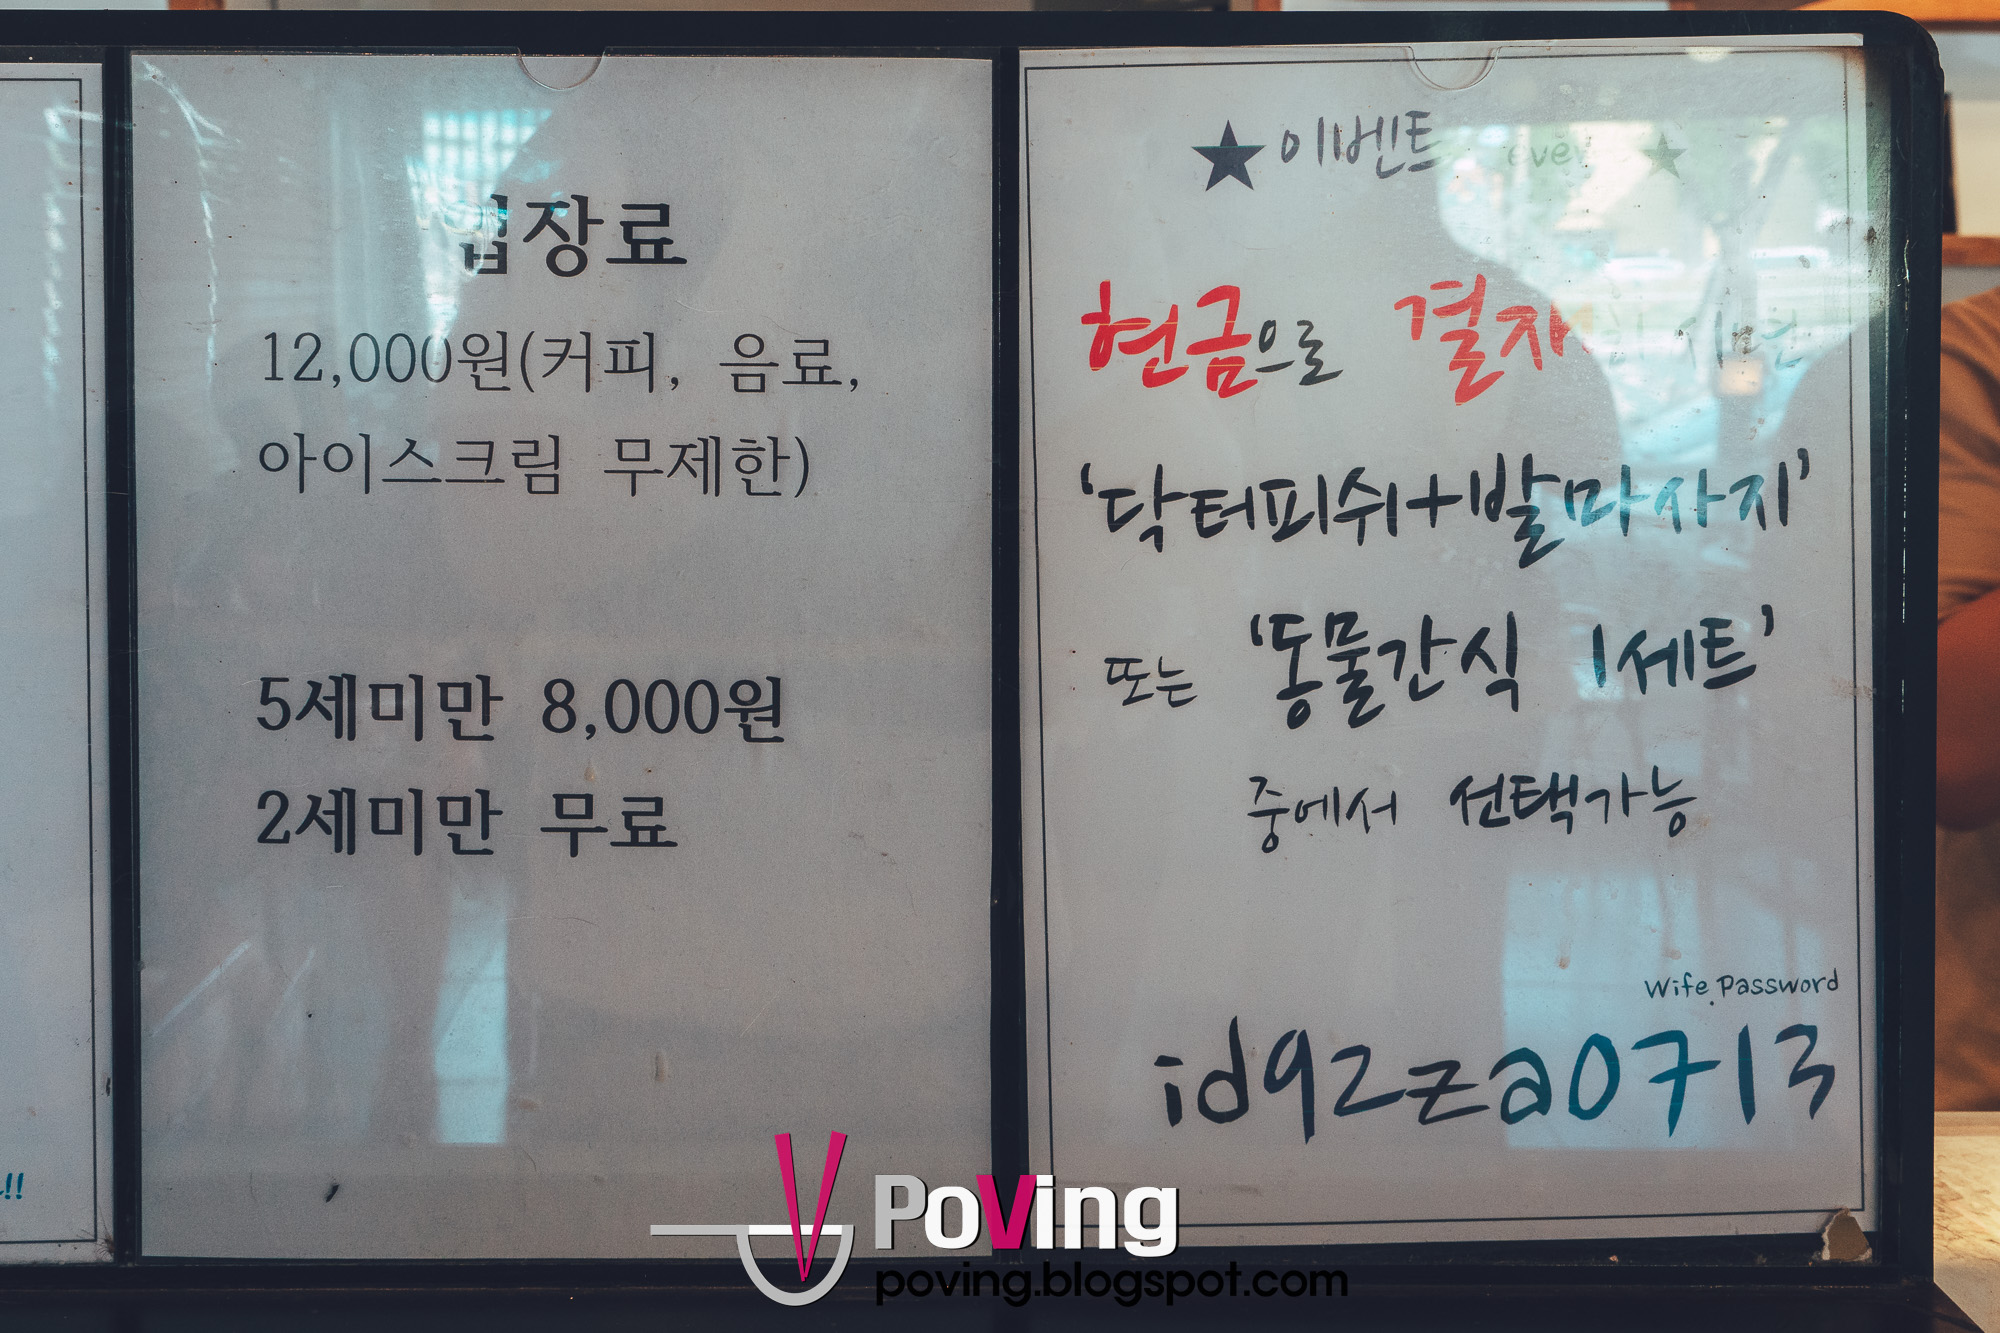 입장료
12,000원(커피, 음료,
아이스크림 무제한)
5세미만 8,000원
2세미만 무료
★이벤트 ★
현금으로 결재
‘닥터피쉬+발마사지’
또는 ‘동물간식 1세트’
중에서 선택가능
Wife.Password
id92za0713
!!
PoVing
poving.blogspot.com